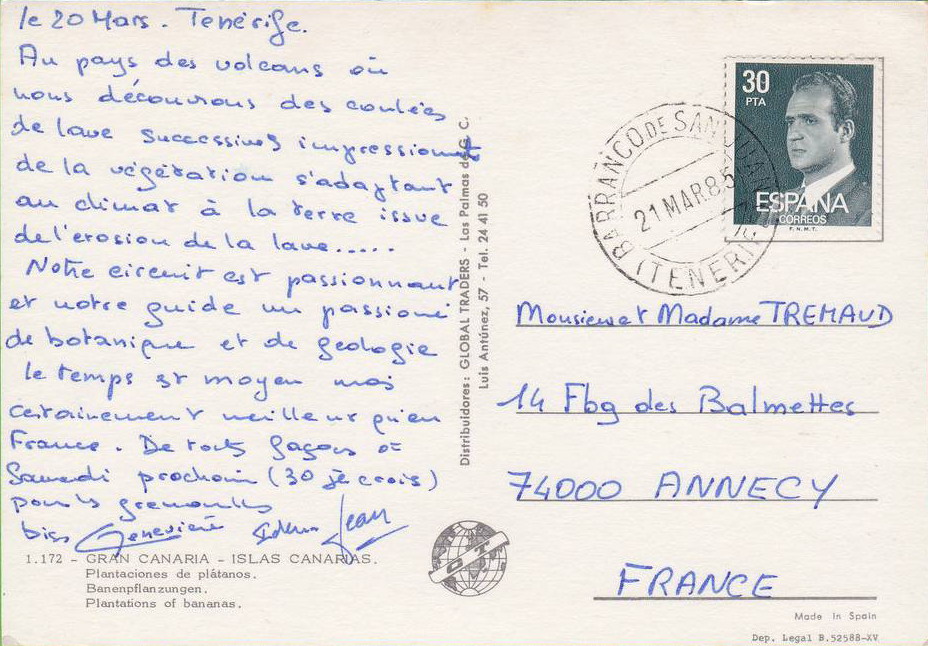 le 20 Mars. Tenérife.
Au pays des volcans où
nous découvrons des coulées
de lave successives impressionnts
de la végétation s'adaptant
au climat à la terre issue
de l'erosion de la lave.....
Notre circuit est passionnant
et notre guide un passioné
de botanique et de geologie
le temps est moyen mais
certainement meilleur qu'en
France. De touts façons à
Samedi prochain (30 je crois)
pour les
bises Geneviève Idem Jean
1.172 - GRAN CANARIA - ISLAS CANARIAS.
Plantaciones de plátanos.
Banenpflanzungen.
Plantations of bananas.
Distribuidores: GLOBAL TRADERS - Las Palmas de G. C.
Luis Antúnez, 57 - Tel. 24 41 50
GT
BARRANCO DE SAN JUAN
21 MAR 85
(TENERIFE)
30
PTA
ESPAÑA
CORREOS
F.N.M.T.
Monsieur et Madame TREMAUD
14 Fbg des Balmettes
74000 ANNECY
FRANCE
Made in Spain
Dep. Legal B.52588-XV